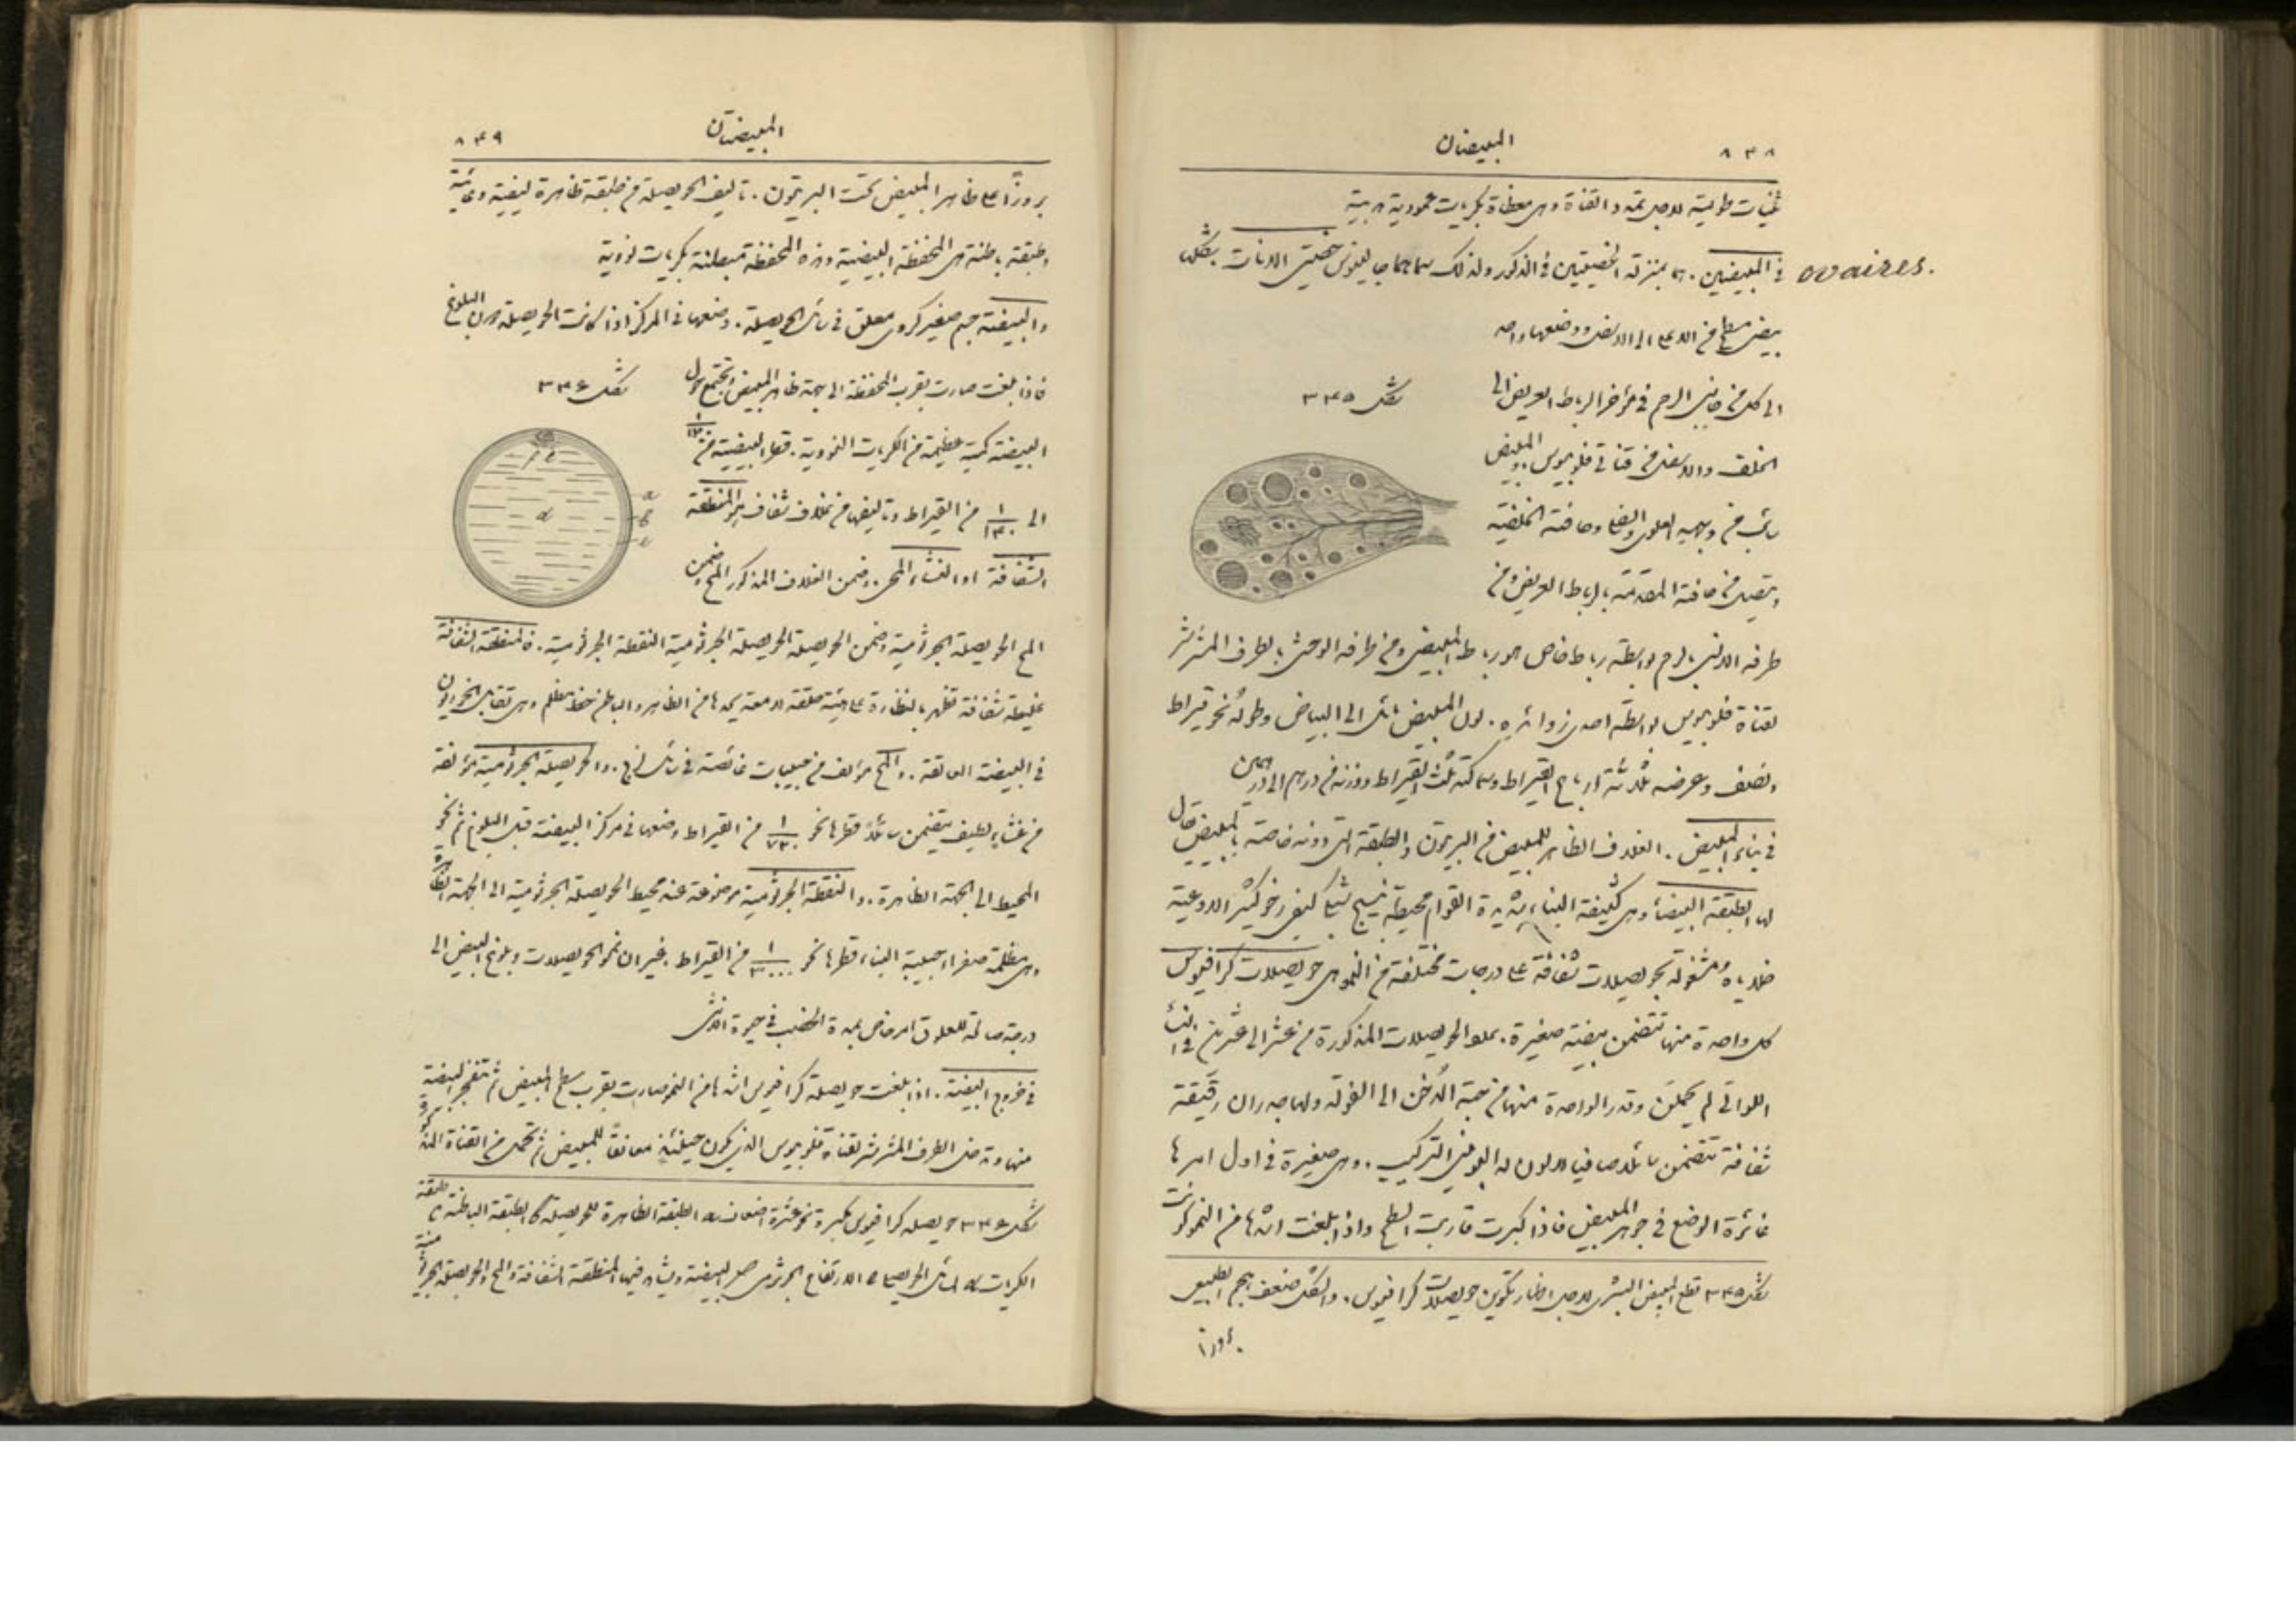 ٨٣٨ المبيضان
ثنيات طولية لاجل تمدد القناة وهي مغطاة بكريات عمودية هدبية
ovaires.
في المبيضين. هما بمنزلة الخصيتين في الذكور ولذلك سماهما جالينوس خصيتي الاناث بشكل
بيض مسطح من الاعلى الى الاسفل ووضعهما واحد
الى كل من جانبي الرحم في مؤخر الرباط العريض الى
الخلف والاسفل من قناتي فلوبيوس. والمبيض
سائب من وجهيه العلوي والسفلي وحافته الخلفية
ويتصل من حافته المقدمة بالرباط العريض ومن
شكل ٣٣٥
طرفه الانسي بالرحم بواسطة رباط خاص هو رباط المبيض ومن طرفه الوحشي بالطرف المشرشر
لقناة فلوبيوس بواسطة احدى زوائده. لون المبيض مائل الى البياض وطوله نحو قيراط
ونصف وعرضه ثلاثة ارباع القيراط وسماكته ثلث القيراط ووزنه من درهم الى درهمين
في بناء المبيض. الغلاف الظاهر للمبيض من البريتون والطبقة التي دونه خاصة بالمبيض يقال
لها الطبقة البيضاء وهي كثيفة البناء شديدة القوام محيطة بنسيج شبكي ليفي رخو كثير الاوعية
خلاياه مشغولة بحويصلات شفافة على درجات مختلفة من النمو هي حويصلات كرافيوس
كل واحدة منها تتضمن بيضة صغيرة. يملو الحويصلات المذكورة من عشر الى عشرين في النساء
اللواتي لم يحملن وقدر الواحدة منها من حبة الدخن الى الفولة ولها جدران رقيقة
شفافة تتضمن سائلا صافيا لا لون له البوميني التركيب. وهي صغيرة في اول امرها
غائرة الوضع في جوهر المبيض فاذا كبرت قاربت السطح واذا بلغت اشدها من النمو كونت
شكل ٣٣٥ قطع المبيض البشري لاجل اظهار تكوين حويصلات كرافيوس. والشكل ضعف الحجم الطبيعي
بروزا
٨٣٩ المبيضتان
بروزًا على ظاهر المبيض تحت البريتون. تاليف الحويصلة من طبقة ظاهرة ليفية وعائية
وطبقة باطنة هي المحفظة البيضية وهذه المحفظة مبطنة بكريات نووية
والبيضة جسم صغير كروي معلق في سائل الحويصلة. وضعها في المركز اذا كانت الحويصلة دون البلوغ
فاذا بلغت صارت بقرب المحفظة الى جهة ظاهر المبيض وتجتمع حول
البيضة كمية عظيمة من الكريات النووية. قطر البيضة من ١/١٢٠
الى ١/١٣٠ من القيراط وتاليفها من غلاف شفاف هو المنطقة
الشفافة او الغشاء المحي. وضمن الغلاف المذكور المح وضمن
شكل ٣٣٦
المح الحويصلة الجرثومية وضمن الحويصلة الجرثومية النقطة الجرثومية. فالمنطقة الشفافة
غليظة شفافة تظهر بالنظارة على هيئة حلقة لامعة يحدها من الظاهر والباطن خط مظلم وهي تقابل الخوريون
في البيضة العالقة. والمح مؤلف من حبيبات غائصة في سائل لزج. والحويصلة الجرثومية مؤلفة
من غشاء لطيف يتضمن سائلا قطرها نحو ١/٧٢٠ من القيراط وضعها في مركز البيضة قبل البلوغ ثم نحو
المحيط الى الجهة الظاهرة. والنقطة الجرثومية موضوعة عند محيط الحويصلة الجرثومية الى الجهة الظاهرة
وهي مظلمة صفراء حبيبية البناء قطرها نحو ١/٣٠٠٠ من القيراط. غير ان نمو الحويصلات وبلوغ البيض الى
درجة صالحة للعلوق امر خاص بمدة الخصب في حيوة الانثى
في خروج البيضة. اذا بلغت حويصلة كرافيوس اشدها من النمو صارت بقرب سطح المبيض ثم تنفجر البيضة
منها وتدخل الطرف المشرشر لقناة فلوبيوس الذي يكون حينئذ معانقًا للمبيض ثم تحمل من القناة المذكورة
شكل ٣٣٦ حويصلة كرافيوس مكبرة نحو عشرة اضعاف. a الطبقة الظاهرة للحويصلة b الطبقة الباطنة c طبقة
الكريات d سائل الحويصلة e الارتفاع الجرثومي حول البيضة ويشاهد فيها المنطقة الشفافة والمح والحويصلة الجرثومية
a
b
c
d
e
f